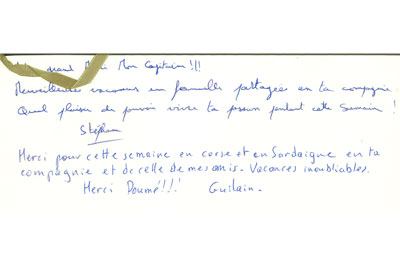 grand Merci Mon Capitaine !!!
Merveilleuses vacances en famille partagées en ta compagnie.
Quel plaisir de pouvoir vivre ta passion pendant cette semaine !
Stéphane
Merci pour cette semaine en corse et en Sardaigne en ta
compagnie et de celle de mes amis - Vacances inoubliables.
Merci Doumé !!! Guilain -